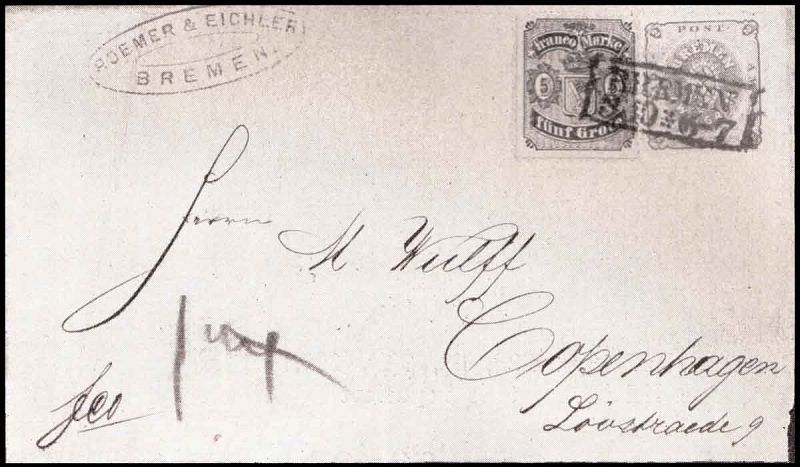 ROEMER & EICHLER
BREMEN.
Franco Marke
5 5
fünf Grote
POST
BREMEN
6-7
Herrn
M. Wulff
Copenhagen
Lövstraede 9
fco